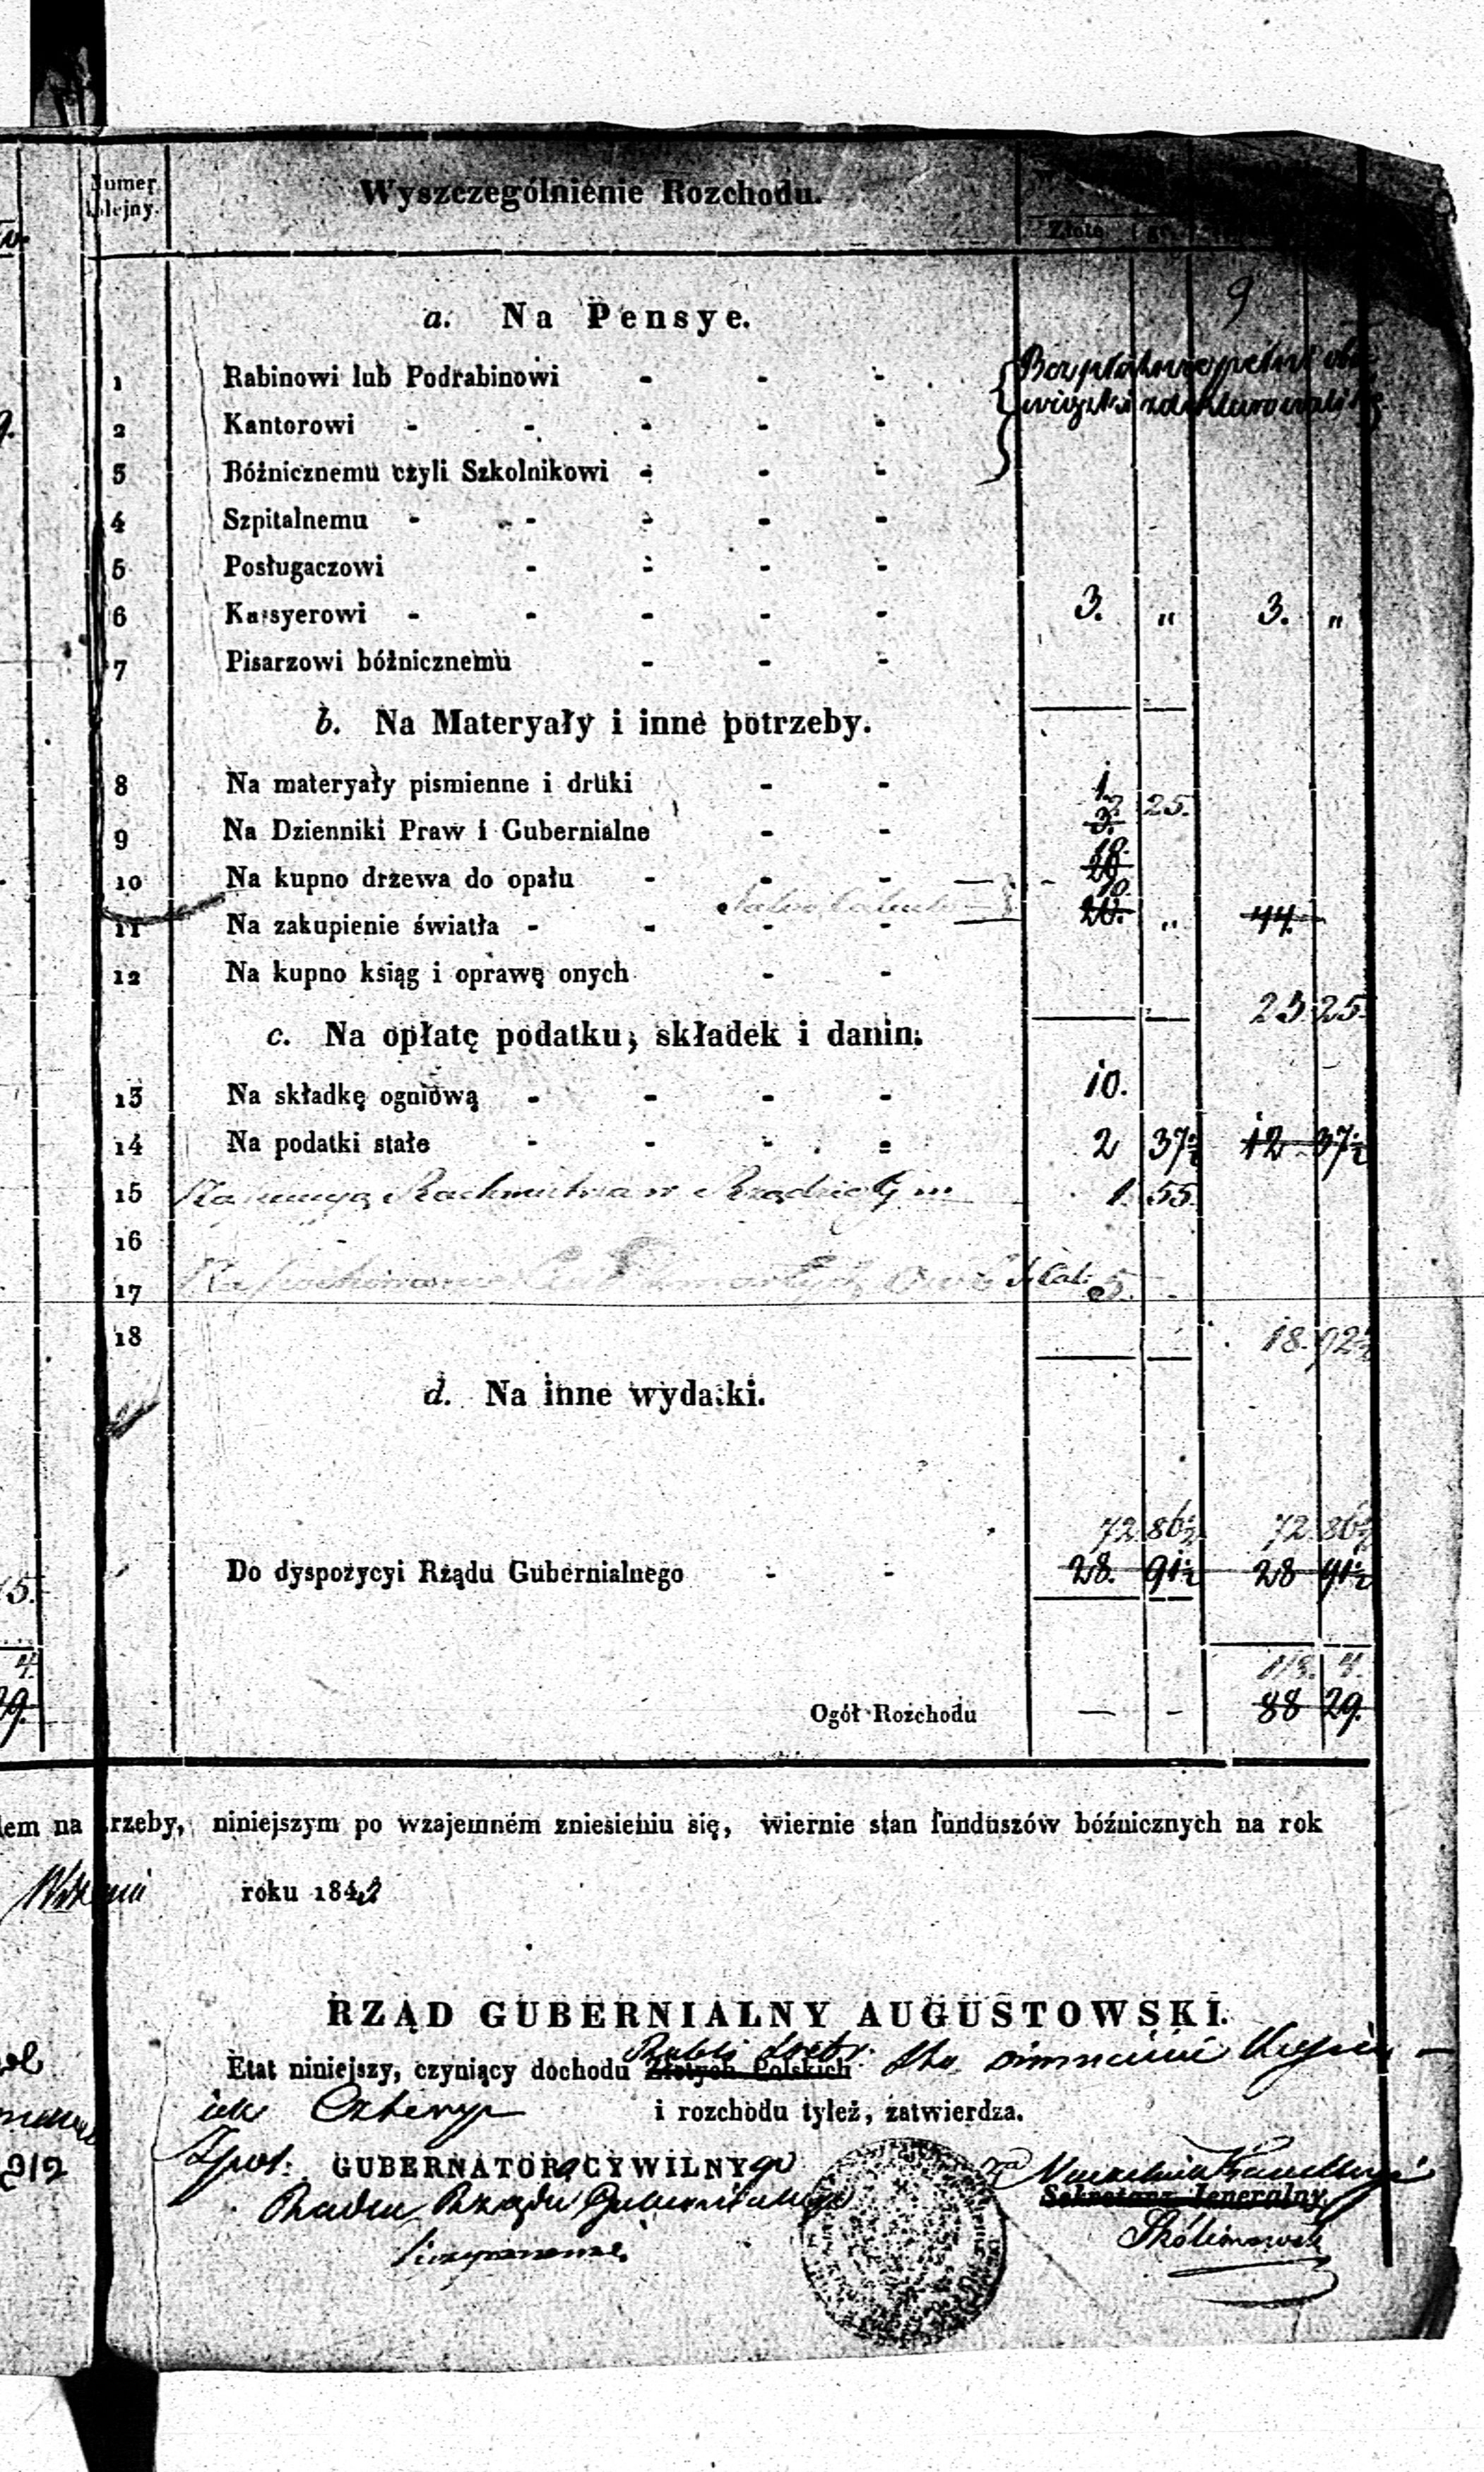 Numer kolejny.
Wyszczególnienie Rozchodu.
Złote gr.
9
a. Na Pensye.
1 Rabinowi lub Podrabinowi - - -
Bezpłatnie pełnić obo
2 Kantorowi - - - - -
wiązki zdeklarowali się
3 Bóżnicznemu czyli Szkolnikowi - - -
4 Szpitalnemu - - - - -
5 Posługaczowi - - - -
6 Kassyerowi - - - - - 3. „ 3. „
7 Pisarzowi bóżnicznemu - - -
b. Na Materyały i inne potrzeby.
8 Na materyały piśmienne i druki - - 1.
2 25.
9 Na Dzienniki Praw i Gubernialne - - 3.
10.
10 Na kupno drzewa do opału - - - 20
10.
11 Na zakupienie światła - - - - 20. „ 44.
12 Na kupno ksiąg i oprawę onych - -
23 25.
c. Na opłatę podatku, składek i danin.
13 Na składkę ogniową - - - - 10.
14 Na podatki stałe - - - - 2 37½ 12 37½
15 Rachmistrza w Rządzie G 1. 55.
16
17 5.
18 18. 92½
d. Na inne wydatki.
72 86½ 72 86½
Do dyspozycyi Rządu Gubernialnego - - 28. 91½ 28 91½
113. 4.
Ogół Rozchodu — - 88 29.
dem na trzeby, niniejszym po wzajemném zniesieniu się, wiernie stan funduszów bóżnicznych na rok
roku 1842
RZĄD GUBERNIALNY AUGUSTOWSKI.
Rubli Srebr. Sto
Etat niniejszy, czyniący dochodu Złotych Polskich
jek Cztery i rozchodu tyleż, zatwierdza.
GUBERNATORA CYWILNYgo
Naczelnik Kancellaryi
Radca Rządu Gubernialnego
Sekretarz Jeneralny.